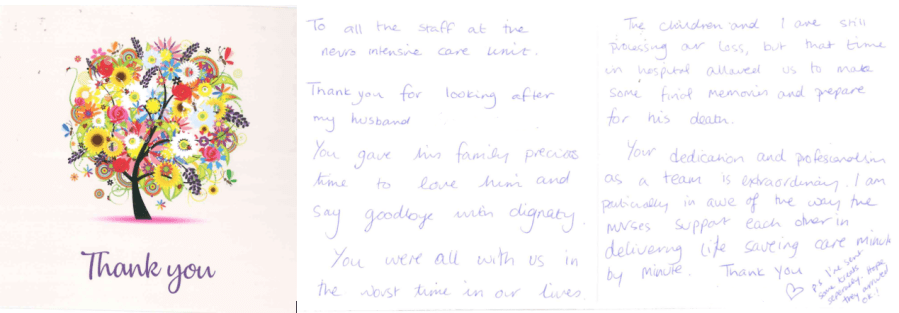 Thank you
To all the staff at the
neuro intensive care unit.
Thankyou for looking after
my husband
You gave his family precious
time to love him and
say goodbye with dignaty.
You were all with us in
the worst time in our lives.
The children and I are still
processing our loss, but that time
in hospital allowed us to make
some final memories and prepare
for his death.
Your dedication and professionalism
as a team is extraordinary. I am
particularly in awe of the way the
nurses support each other in
delivering life saveing care minute
by minute. Thank you
P.S I've sent
some treats
seperately. Hope
they arrived
ok!